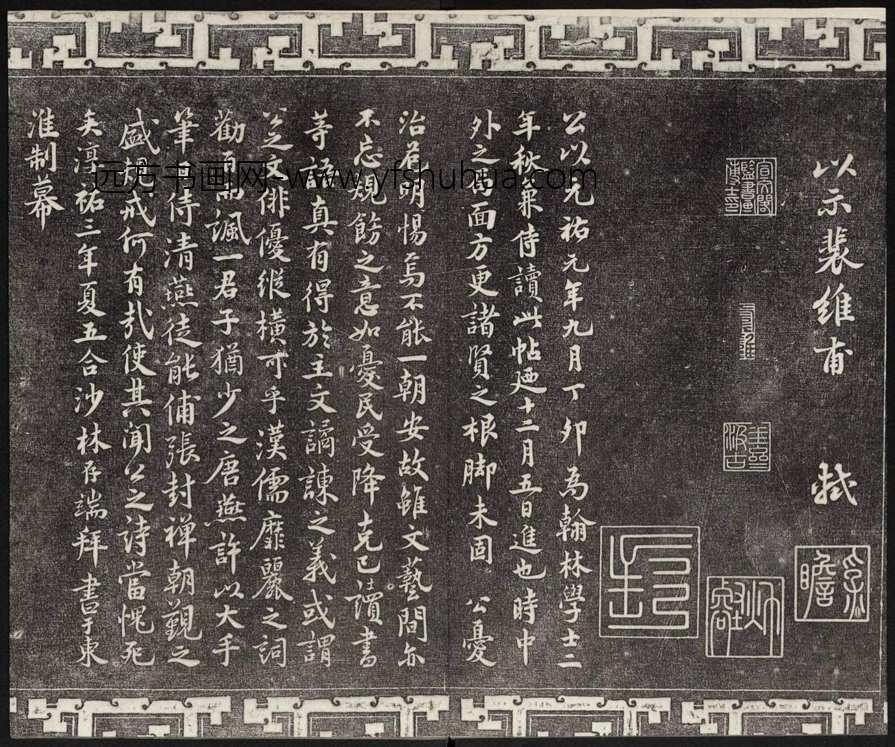 以示裴維甫 軾
公以元祐元年九月丁卯為翰林學士二
年秋兼侍讀此帖廼十二月五日進也時中
外之侮面方更諸賢之根脚未固 公憂
治若明惕焉不能一朝安故雖文藝間亦
不忘規飭之意如憂民受降克己讀書
等語真有得於主文譎諫之義或謂
公之文俳優縱橫可乎漢儒靡麗之詞
勸而諷一君子猶少之唐燕許以大手
筆侍清燕徒能俌張封禪朝覲之
盛規戒何有哉使其聞公之詩當愧死
矣淳祐三年夏五合沙林存端拜書于東
淮制幕
远方书画网-www.yfshuhua.com